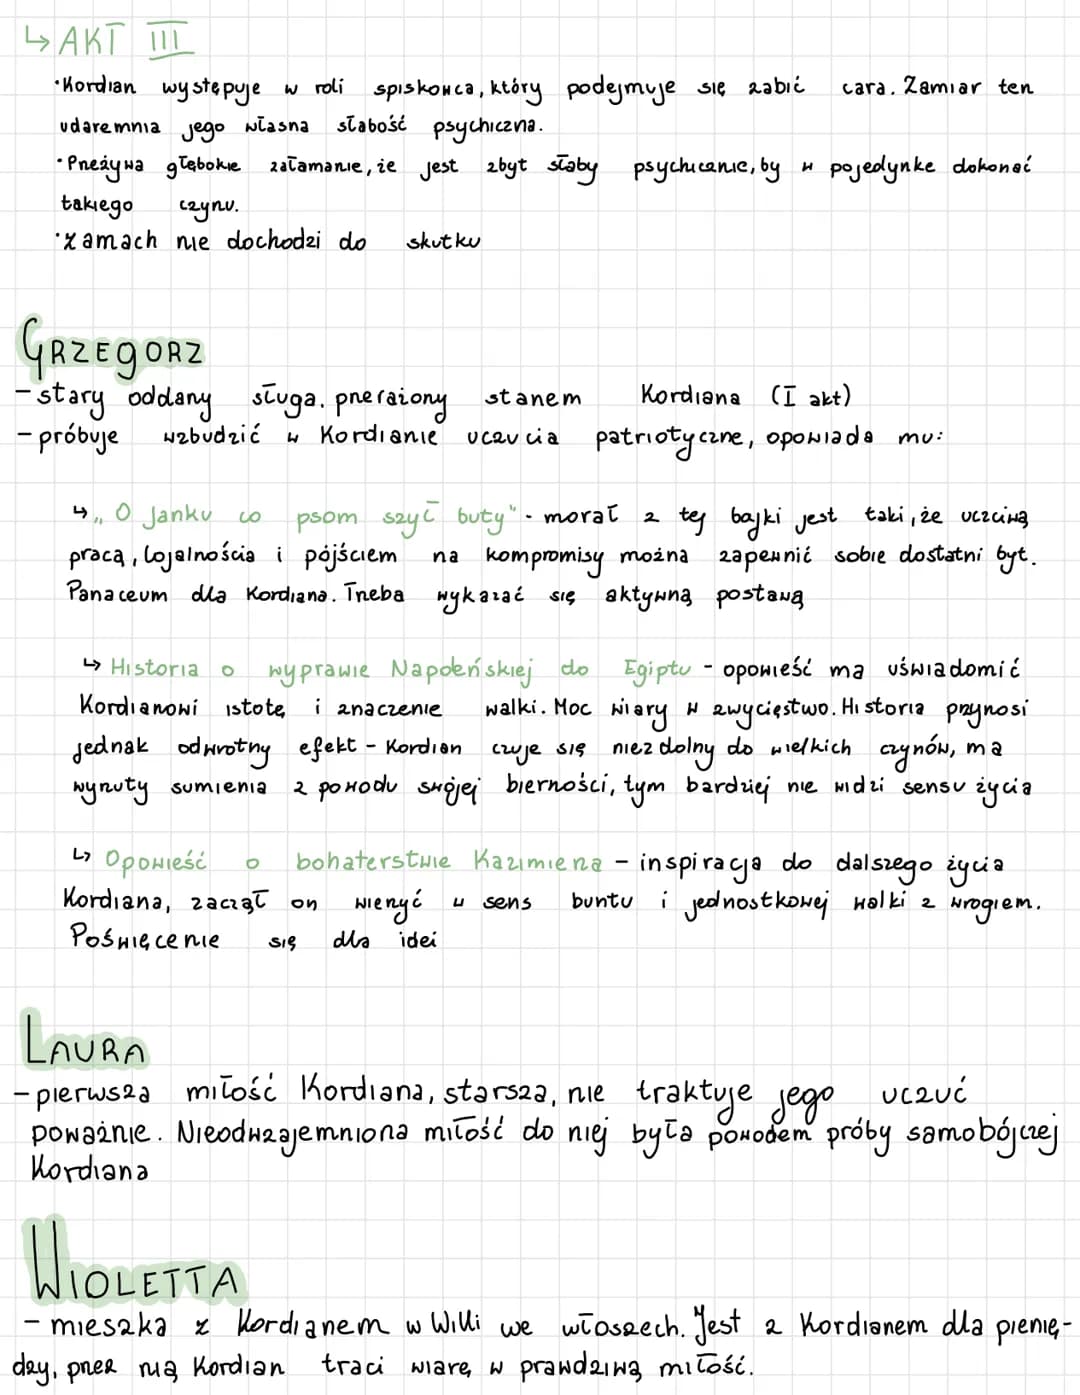 ↳ AKT III
•Kordian występuje w roli spiskowca, który podejmuje się zabić cara. Zamiar ten
udaremnia jego własna słabość psychiczna.
•Przeżywa głębokie załamanie, że jest zbyt słaby psychicznie, by w pojedynke dokonać
takiego czynu.
•zamach nie dochodzi do skutku
GRZEGORZ
- stary oddany sługa. przerażony stanem Kordiana (I akt)
- próbuje wzbudzić w Kordianie uczucia patriotyczne, opowiada mu:
↳ „O Janku co psom szył buty" - morał z tej bajki jest taki, że uczciwą
pracą, lojalnościa i pójściem na kompromisy można zapewnić sobie dostatni byt.
Panaceum dla Kordiana. Trzeba wykazać się aktywną postawą
↳ Historia o wyprawie Napoleńskiej do Egiptu - opowieść ma uświadomić
Kordianowi istotę i znaczenie walki. Moc wiary w zwycięstwo. Historia przynosi
jednak odwrotny efekt - Kordian czuje się niezdolny do wielkich czynów, ma
wyrzuty sumienia z powodu swojej bierności, tym bardziej nie widzi sensu życia
↳ Opowieść o bohaterstwie Kazimierza - inspiracja do dalszego życia
Kordiana, zaczął on wierzyć w sens buntu i jednostkowej walki z wrogiem.
Poświęcenie się dla idei
LAURA
- pierwsza miłość Kordiana, starsza, nie traktuje jego uczuć
poważnie. Nieodwzajemniona miłość do niej była powodem próby samobójczej
Kordiana
WIOLETTA
- mieszka z Kordianem w Willi we włoszech. Jest z Kordianem dla pienię-
dzy, przez nią Kordian traci wiarę w prawdziwą miłość.